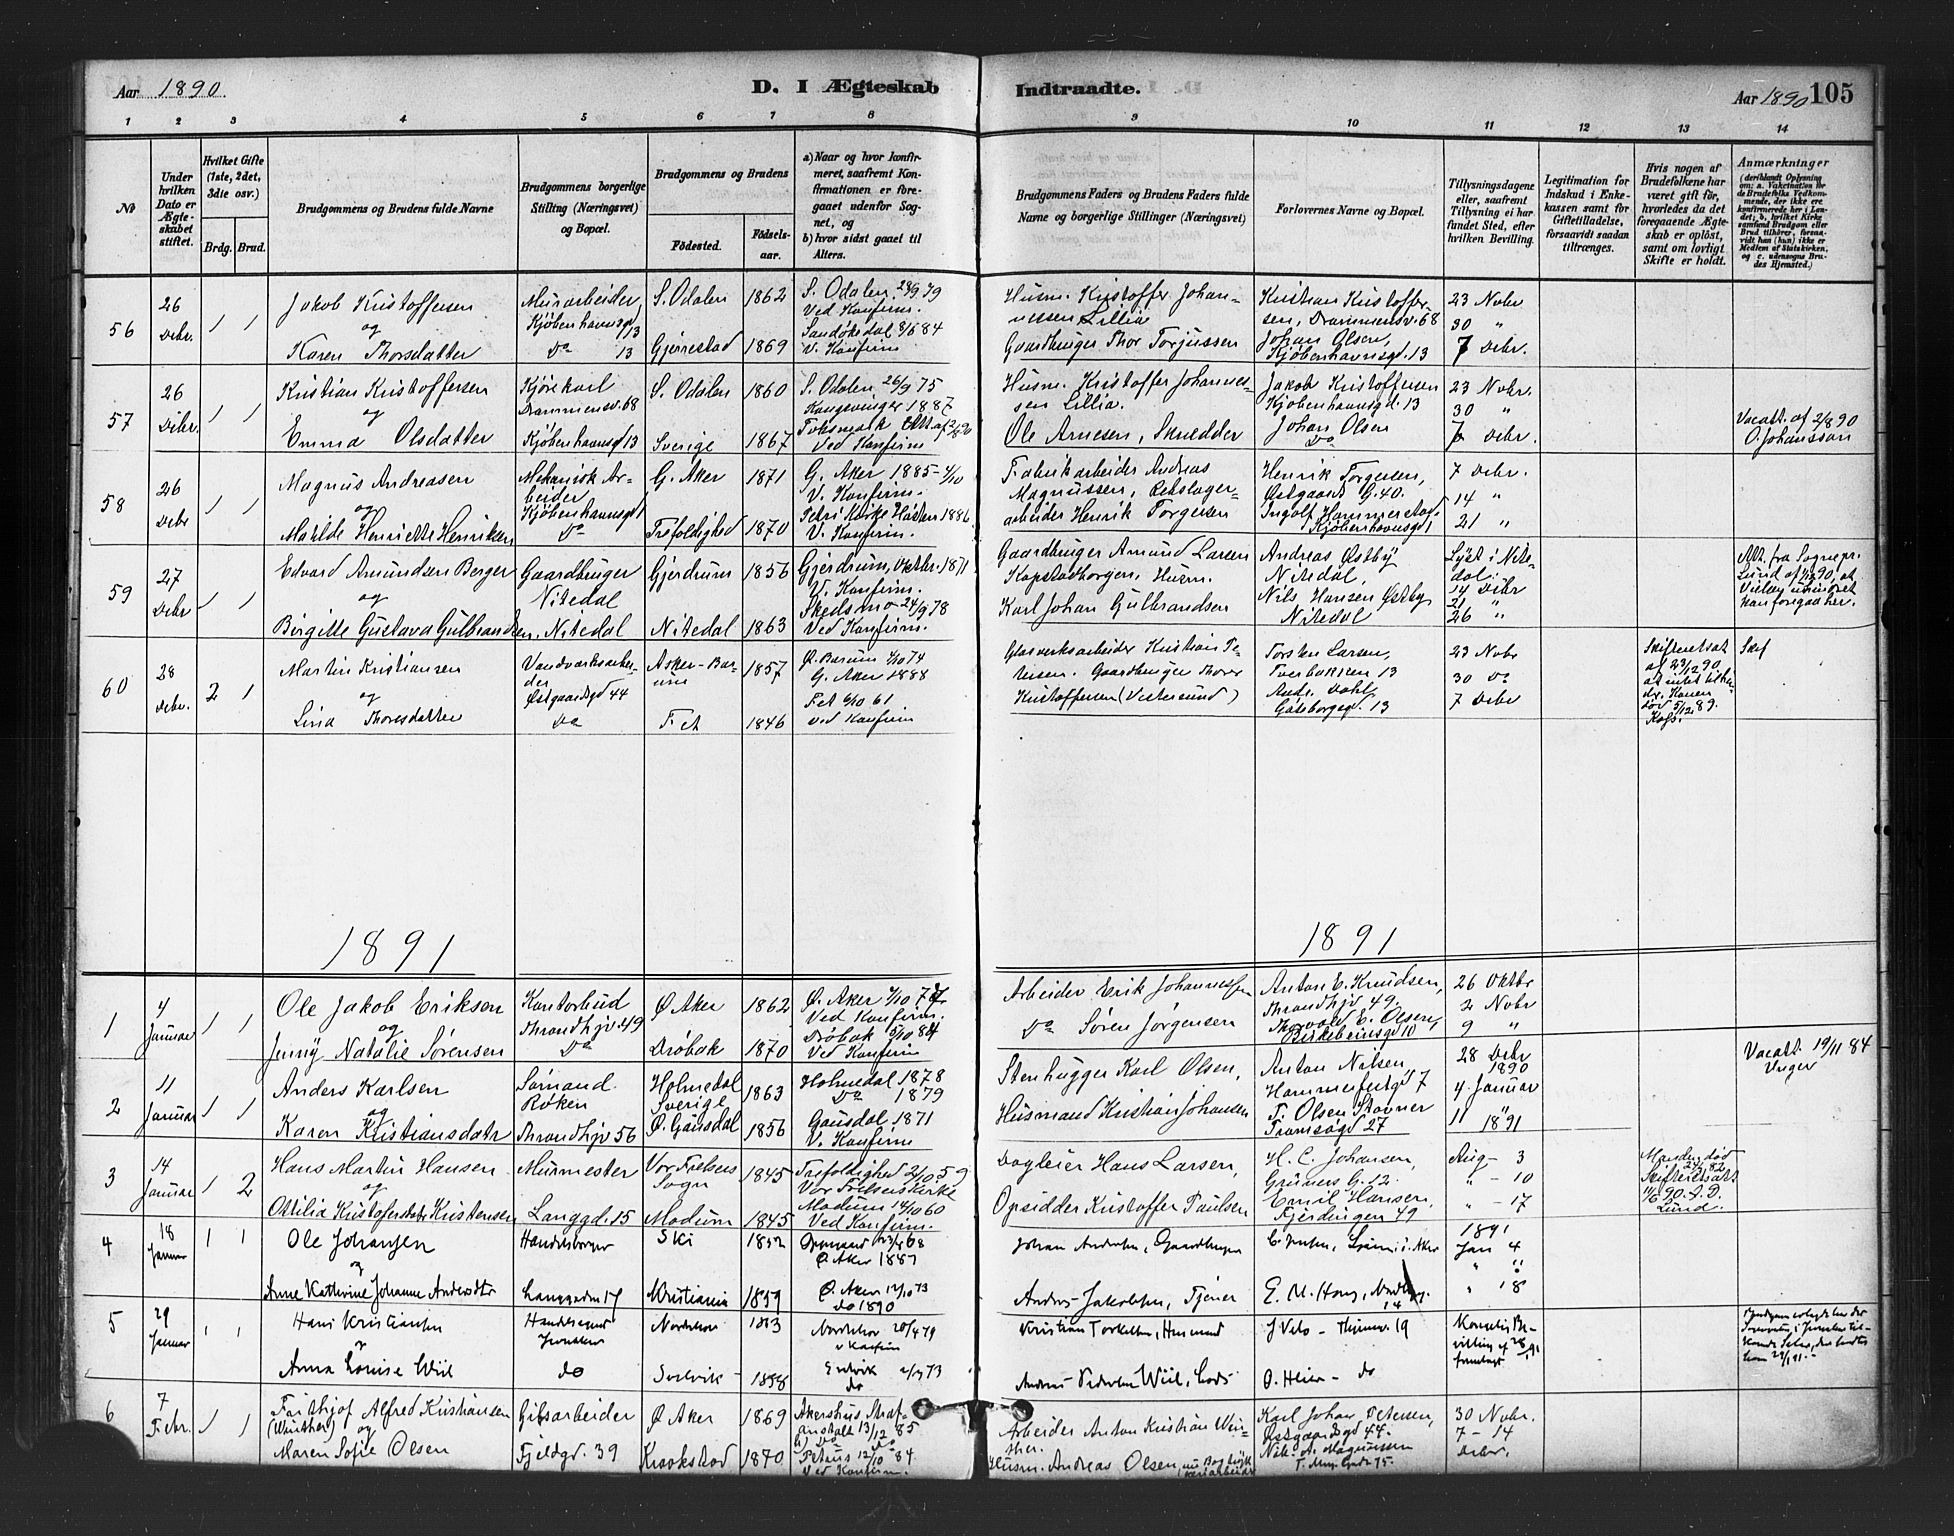 Aar 1890.
D. I Ægteskab Indtraadte.
Aar 1890 105
1 2 3 4 5 6 7 8 9 10 11 12 13 14
No
Under hvilken Dato er Ægteskabet stiftet.
Hvilket Gifte (1ste, 2det, 3die osv.)
Brdg. Brud.
Brudgommens og Brudens fulde Navne
Brudgommens borgerlige Stilling (Næringsvei) og Bopæl.
Brudgommens og Brudens
Fødested. Fødselsaar.
a) Naar og hvor konfirmeret, saafremt Konfirmationen er foregaaet udenfor Sognet, og
b) hvor sidst gaaet til Alters.
Brudgommens Faders og Brudens Faders fulde Navne og borgerlige Stillinger (Næringsvei)
Forlovernes Navne og Bopæl.
Tillysningsdagene eller, saafremt Tillysning ei har fundet Sted, efter hvilken Bevilling.
Legitimation for Indskud i Enkekassen samt for Giftetilladelse, forsaavidt saadan tiltrænges.
Hvis nogen af Brudefolkene har været gift før, hvorledes da det foregaaende Ægteskab er opløst, samt om lovligt Skifte er holdt.
Anmærkninger
56
26 Debr.
1 1
Jakob Kristoffersen
og
Karen Thorsdatter
Murarbeider,
Kjøbenhavnsgd 13
Do 13
S. Odalen 1862
Gjerrestad 1869
S. Odalen 28/9 79
Ved Konfirm.
Sandøkedal 8/6 84
V. Konfirm
Husm. Kristoffer Johannessen Lillia
Gaardbruger Thor Torjussen
Kristian Kristoffersen, Drammensv. 68
Johan Olsen,
Kjøbenhavnsgd. 13
23 Nobr
30 "
7 Debr.
57
26 Debr.
1 1
Kristian Kristoffersen
og
Emma Olsdatter
Kjørekarl
Drammensv. 68
Kjøbenhavnsgd 13
S. Odalen 1860
Sverige 1867
S. Odalen 26/9 75
Kongsvinger 1887
Ved Konfirm
Husm. Kristoffer Johannessen Lillia.
Ole Arnesen, Skrædder
Jakob Kristoffersen
Kjøbenhavnsgd. 13
Johan Olsen
Do
23 Nobr.
30 "
7 Debr.
Vacatt. af 2/8 90
O. Johansson
58
26 Debr
1 1
Magnus Andreasen
og
Matilde Henriette Henriksen
Mekanisk Arbeider
Kjøbenhavnsgd 1
Do
G. Aker 1871
Trefoldighed 1870
G. Aker 1885 - 4/10
V. Konfirm.
Petri Kirke Høsten 1886
V. Konfirm.
Fabrikarbeider Andreas
Magnussen, Rebslagerarbeider Henrik Torgersen
Henrik Torgersen,
Østgaards G. 40.
Kjøbenhavnsgd 1
7 Debr.
14 "
21 "
59
27 Debr
1 1
Edvard Amundsen Berger
og
Birgitte Gustava Gulbrandsen.
Gaardbruger
Nitedal
Nitedal
Gjerdrum 1856
Nitedal 1863
Gjerdrum, Oktbr. 1871
V. Konfirm.
Skedsmo 24/9 78
Ved Konfirm.
Gaardbruger Amund Larsen
Kapstadborgen, Husm.
Karl Johan Gulbrandsen
Andreas Østby
Nitedal,
Nils Hansen Østby
Nitedal
Lyst i Nitedal:
14 Debr
21 "
26 "
Att. fra Sognepr.
Lund af 1/12 90, at
Vielsen uhindret
kan foregaa her.
60
28 Debr.
2 1
Martin Kristiansen
og
Lina Thorsdatter
Vandværksarbeider
Østgaardsgd 44
Do
Asker-Bærum 1857
Fet 1846
Ø. Bærum 4/10 74
G. Aker 1888
Fet 6/10 61
ved Konfirm
Glasværksarbeider Kristian Petersen. Gaardbruger Thor
Kristoffersen (Vestersund)
Torsten Larsen,
Tverbakken 13
Andr. Dahl
Gøteborgsgd. 13
23 Nobr
30 Do
7 Debr
Skifteretsat
af 23/12 90
at intet til
Konen
død 5/12 89.
Skif
1891
1891
1
4 Januar
1 1
Ole Jakob Eriksen
og
Jenny Natalie Sørensen
Kontorbud
Throndhjv. 49
Do
Ø. Aker 1862
Drøbak 1870
Ø. Aker 7/10 77
Ved Konfirm.
Drøbak 5/10 84
Ved Konfirm
Arbeider Erik Johannessen
Do Søren Jørgensen
Anton E. Knudsen,
Throndhjv. 49.
Thorvald E. Olsen,
Birkebeinsgd 10
26 Oktbr
2 Nobr
9 "
2
11 Januar
1 1
Anders Karlsen
og
Karen Kristiansdatr
Sømand
Røken
Throndhjv 56
Holmedal Sverige 1863
Ø. Gausdal 1856
Holmedal 1878
Do 1879
Gausdal, 1871
V. Konfirm
Stenhugger Karl Olsen,
Husmand Kristian Johansen
Anton Nilsen
Hammerfestgd 7
F. Olsen Stovner
Tromsøgd 27
28 Debr 1890
4 Januar
11 " 1891
Vacatt. 19/11 84
Unger
3
14 Januar
1 2
Hans Martin Hansen
og
Ottilia Kristoffersdatr Kristensen
Murmester
Langgd. 15
Vor Frelsers Sogn 1845
Modum 1845
Trefoldighed 2/10 59
Vor Frelsers Kirke
Modum 14/10 60
Ved Konfirm.
Dagleier Hans Larsen,
Opsidder Kristoffer Paulsen
H. C. Johansen,
Grüners G. 12.
Emil Hansen,
Fjerdingen 49
Aug - 3
" - 10
" - 17
Manden død
Skifteretsatt.
11/6 90. A. D.
Lund.
4
18 Januar
1 1
Ole Johansen
og
Anne Kathrine Johanne Andersdtr
Handelsborger
Langgaden 17
Ski 1852
Kristiania 1859
Ø. Aker 1887
Ø. Aker 12/10 73
do 1890
Johan Andersen, Gaardbruger
Anders Jakobsen, Tjener
1891
Jan 4
" 11
" 18
5
29 Januar
1 1
Hans Kristiansen
og
Anna Louise Wiil
do
1863
1858
20/4 79
v Konfirm
do
Kristian Torkelsen, Husmand
J Velo - Thjemsv. 19
O. Heier - do
6
7 Febr.
1 1
Frithjof Alfred Kristiansen
(Winther) og
Maren Sofie Olsen
Gibsarbeider
Fjeldgd. 39
Ø Aker 1869
Krookstad 1870
Akershus Strafanstalt 13/12 85
Petrus 12/10 84
Ved Konfirm.
Arbeider Anton Kristian Winther.
Husm. Andreas Olsen,
Karl Johan Petersen,
Østgaardsgd 44.
Nils A. Magnussen
30 Nobr.
7 - 14
Debr.